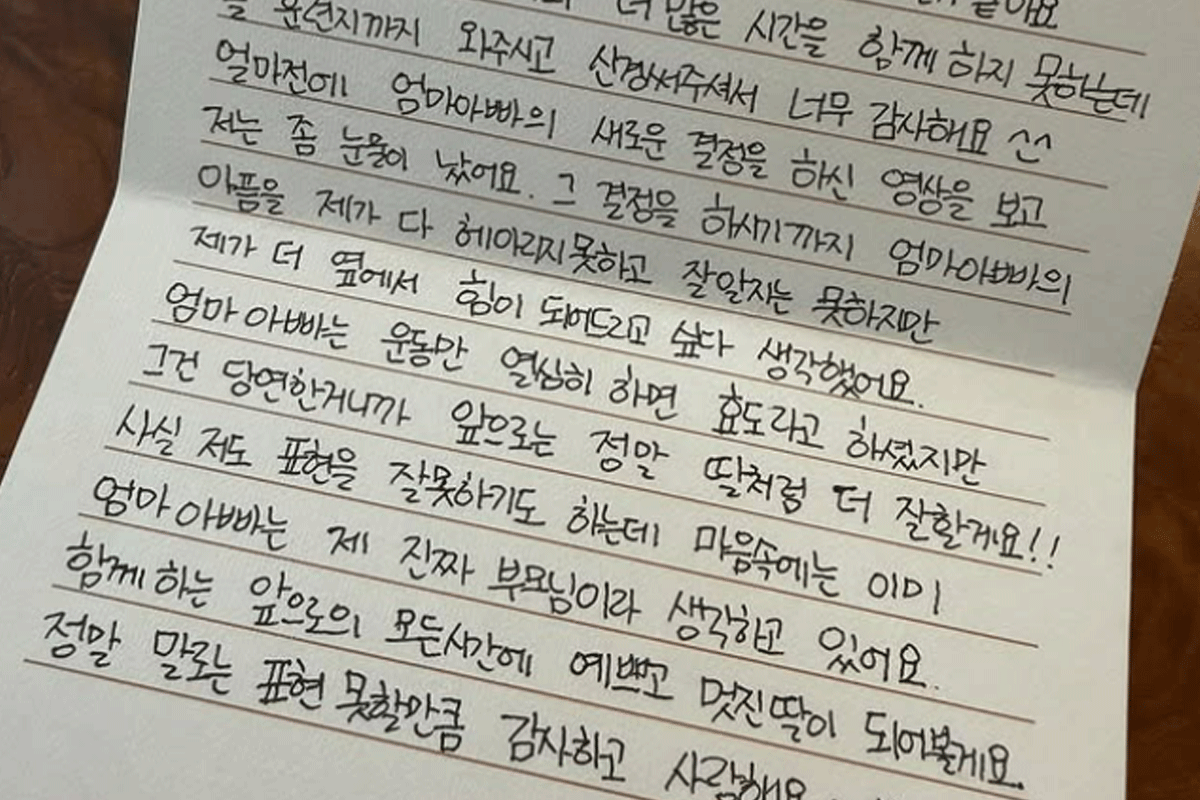 더 많은 시간을 함께 하지 못하는데
훈련지까지 와주시고 신경써주셔서 너무 감사해요 ^^
얼마전에 엄마아빠의 새로운 결정을 하신 영상을 보고
저는 좀 눈물이 났어요. 그 결정을 하시기까지 엄마아빠의
아픔을 제가 다 헤아리지못하고 잘알지는 못하지만
제가 더 옆에서 힘이 되어드리고 싶다 생각했어요.
엄마아빠는 운동만 열심히 하면 효도라고 하셨지만
그건 당연한거니까 앞으로는 정말 딸처럼 더 잘할게요!!
사실 저도 표현을 잘못하기도 하는데 마음속에는 이미
엄마아빠는 제 진짜 부모님이라 생각하고 있어요.
함께하는 앞으로의 모든시간에 예쁘고 멋진딸이 되어볼게요.
정말 말로는 표현 못할만큼 감사하고 사랑해요